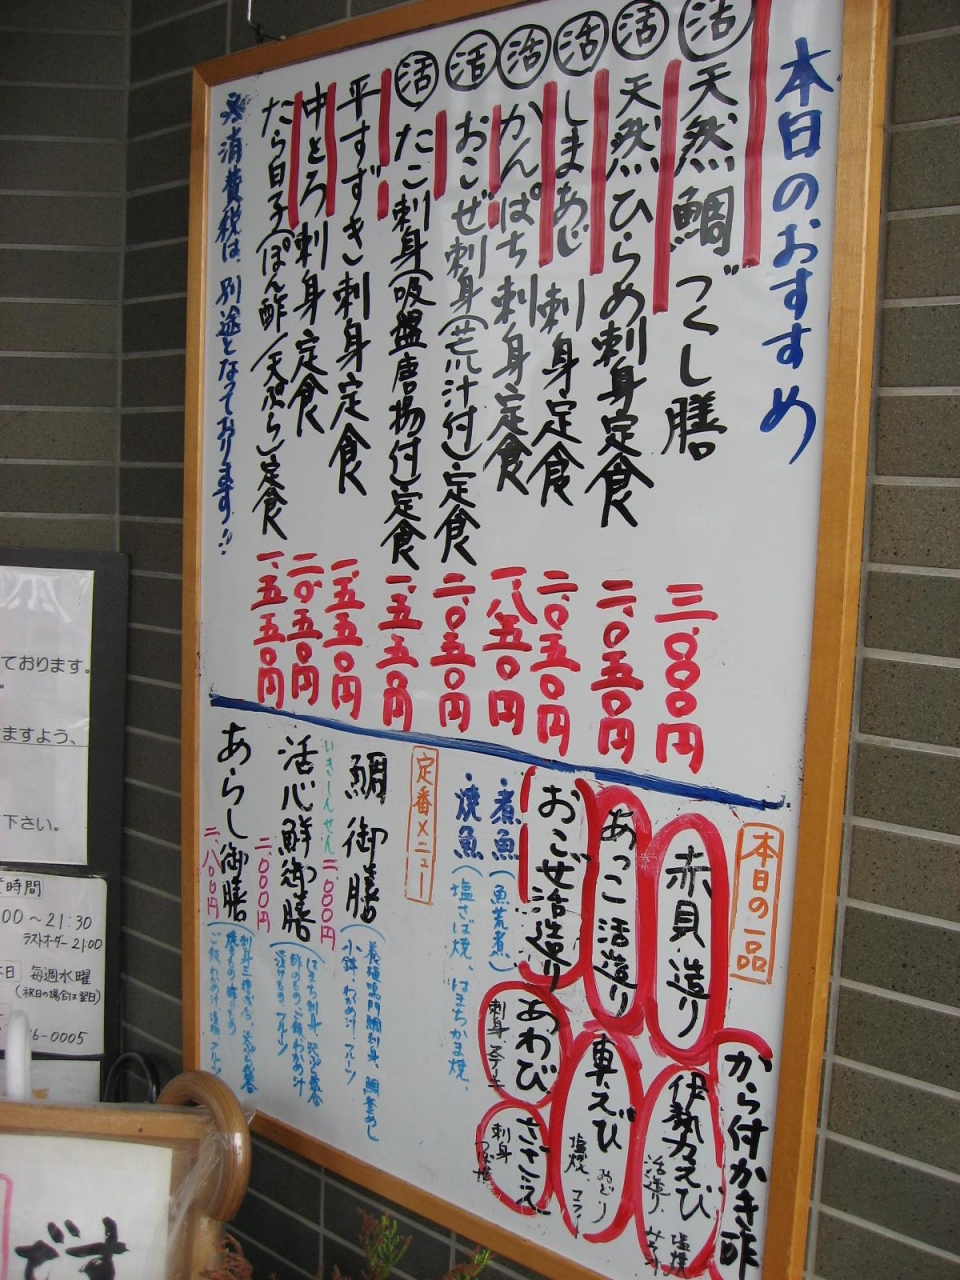 本日のおすすめ
活 天然鯛づくし膳 三、〇〇〇円
活 天然ひらめ刺身定食 二、〇五〇円
活 しまあじ刺身定食 二、〇五〇円
活 かんぱち刺身定食 一、八五〇円
活 おこぜ刺身(荒汁付)定食 二、〇五〇円
活 たこ刺身(吸盤唐揚付)定食 一、五五〇円
平すずき刺身定食 一、五五〇円
中とろ刺身定食 二、〇五〇円
たら白子(ぽん酢/天ぷら)定食 一、五五〇円
※消費税は、別途となっております!!
本日の一品
から付かき酢
赤貝造り
伊勢えび 活造り 塩焼
あっこ活造り
車えび 塩焼 フライ
おこぜ活造り
あわび 刺身 ステーキ
さざえ 刺身 つぼ焼
・煮魚(魚荒煮)
・焼魚(塩さば焼、はまちかま焼、
定番メニュー
鯛御膳 二、〇〇〇円
小鉢、わかめ汁、フルーツ
いきしんせん
活心鮮御膳 二、〇〇〇円
漬けもの、フルーツ
あらし御膳 二、八〇〇円
ております。
ますよう、
下さい。
時間
00〜21:30
ラストオーダー 21:00
日 毎週水曜
(祝日の場合は翌日)
6-0005
です